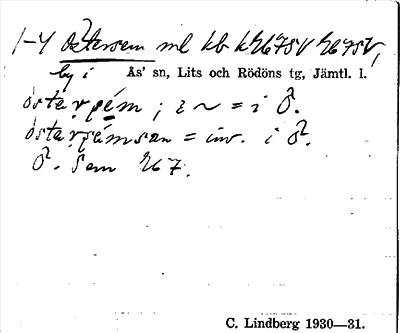 1-4 Östersem ml kb kr6751 r6751,
by i Ås' sn, Lits och Rödöns tg, Jämtl. l.
östaṛsém ; i ~ = i Ö.
östaṛsémsan = inv. i Ö.
Ö. Sem r67.
C. Lindberg 1930—31.